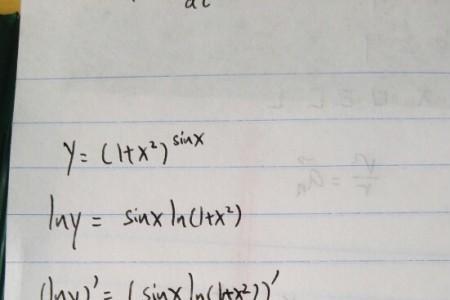 dt
y = (1+x²)^sinx
lny = sinx ln(1+x²)
(lny)' = (sinx ln(1+x²))'